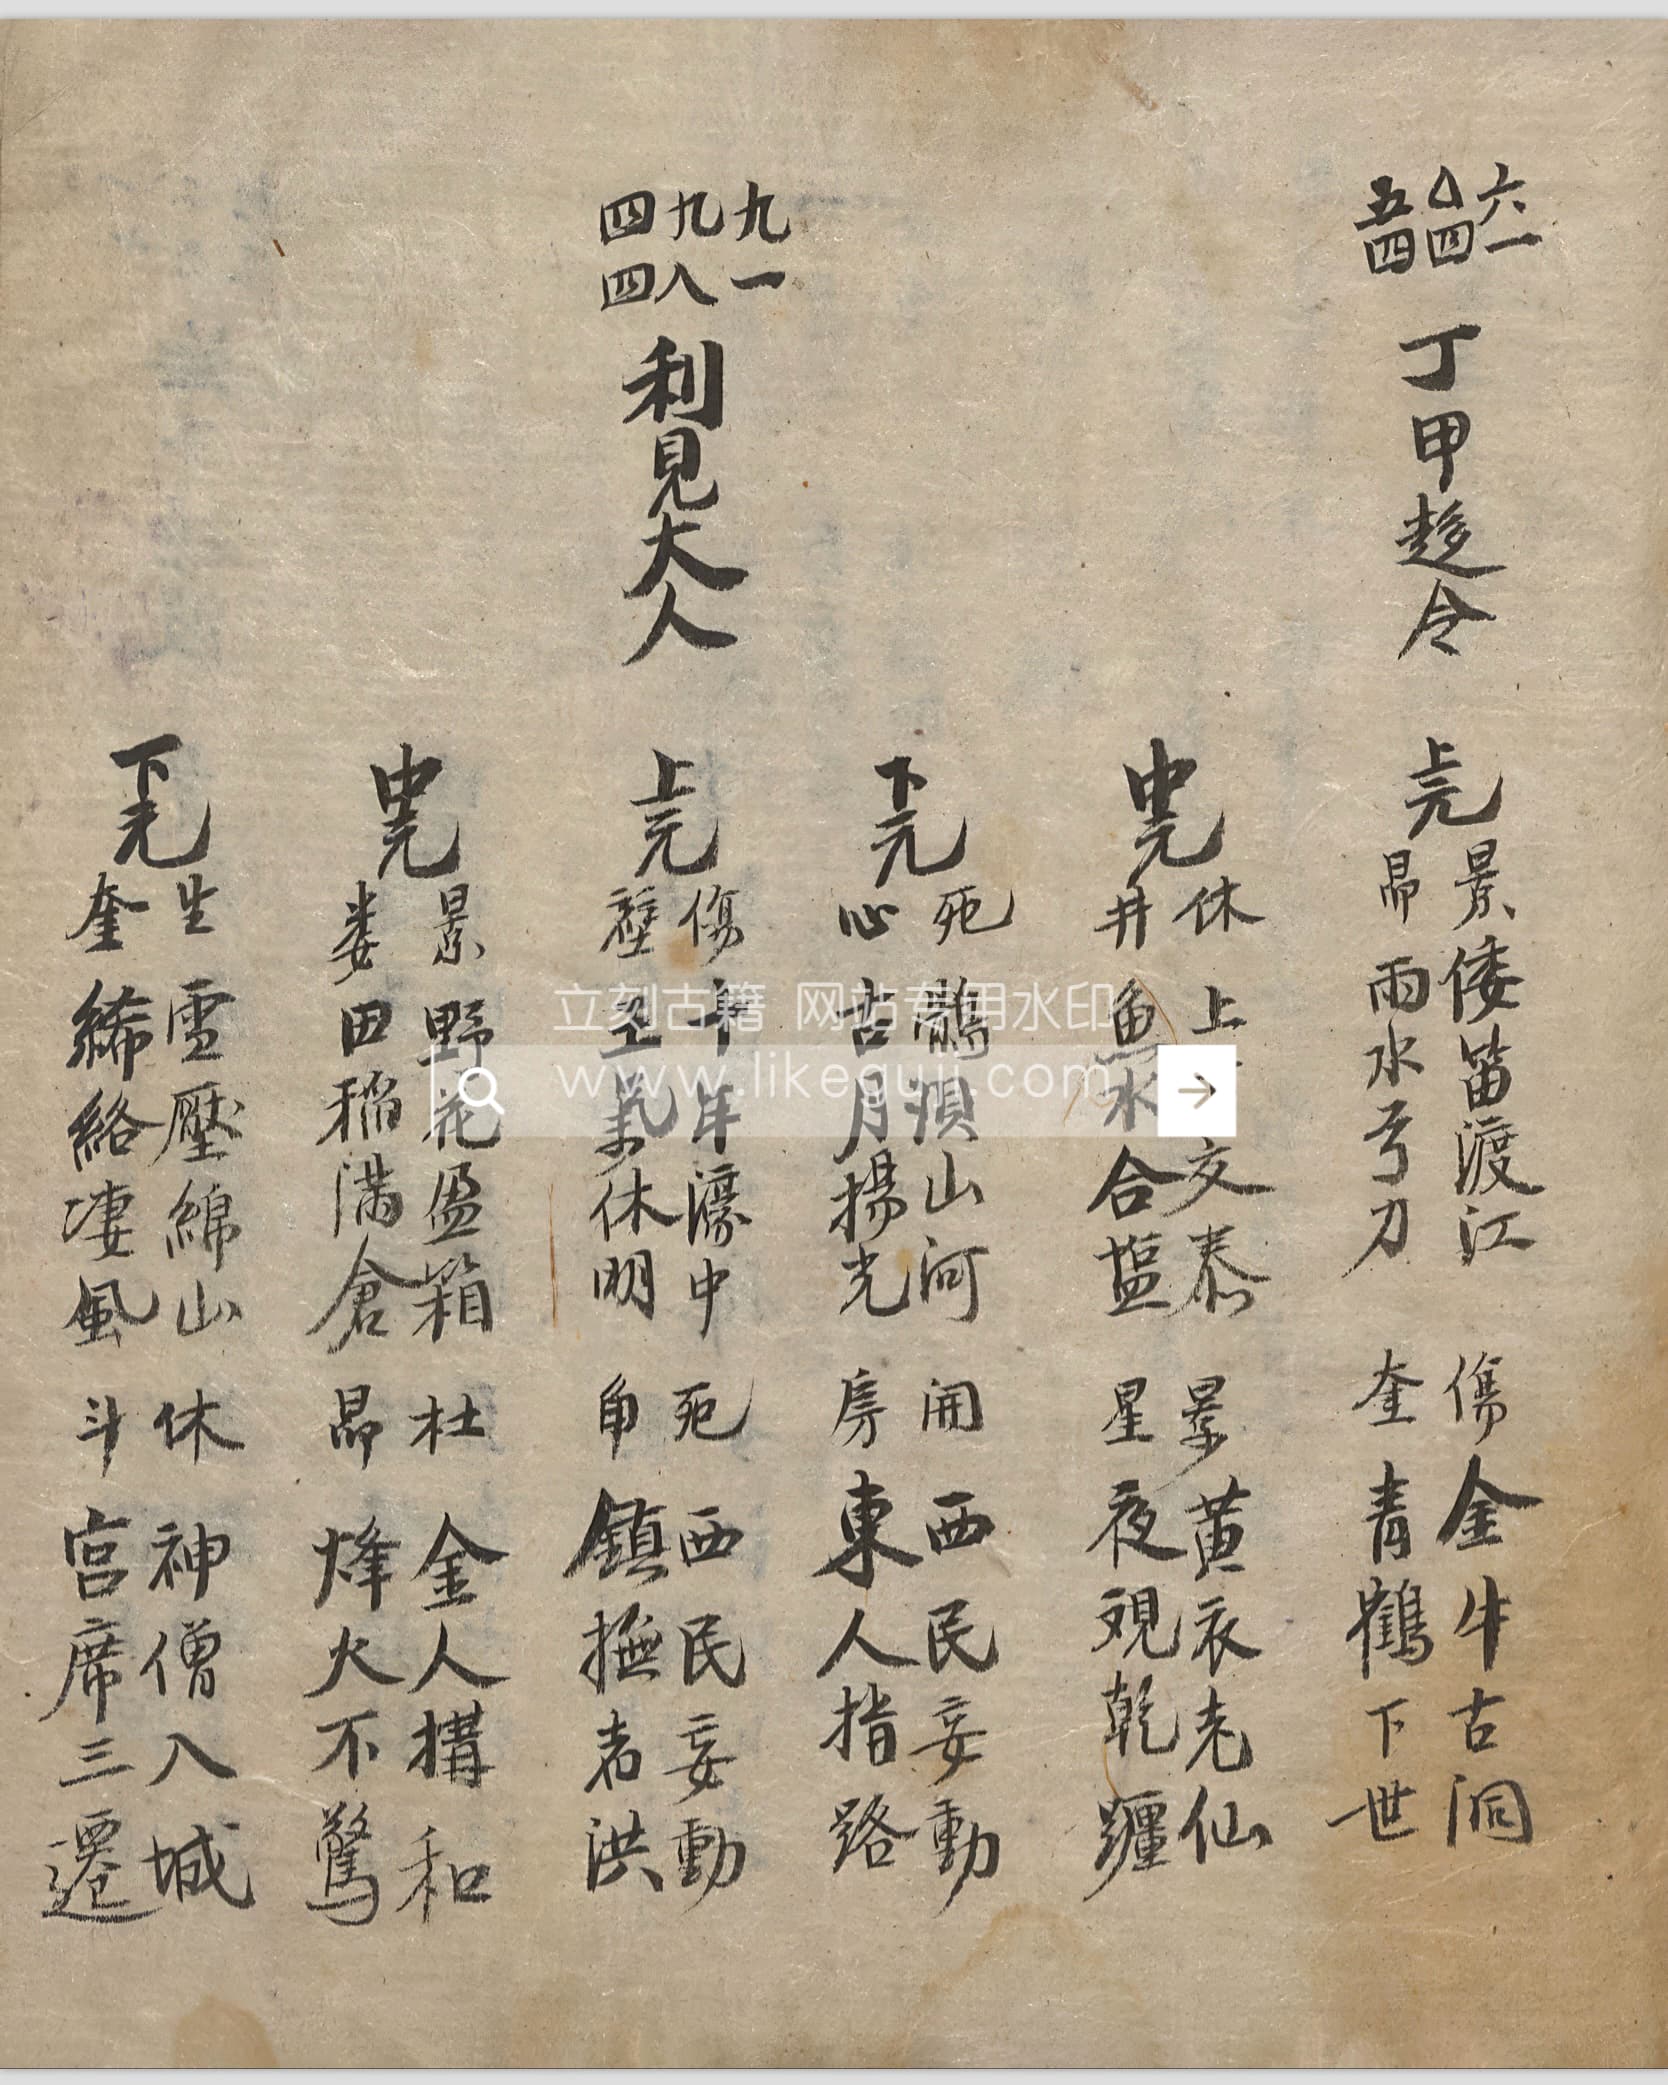 六一
厶四
五四
丁甲趍令
上元
景倭笛渡江 傷金牛古洞
昴雨水弓刀 奎青鶴下世
中元
休上 交泰 景黄衣老仙
井魚水合塩 星夜观乾躔
下元
死鶻 山河 開西民妄動
心古月揚光 房東人指路
九一
九八
四四
利見大人
上元
傷 年濠中 死西民妄動
壁 氣休明 角鎮撫者洪
中元
景野花盈箱 杜金人搆和
娄田稲满倉 昴烽火不驚
下元
生雪壓綿山 休神僧入城
奎絺綌凄風 斗宫席三遷
立刻古籍 网站专用水印
www.likeguji.com